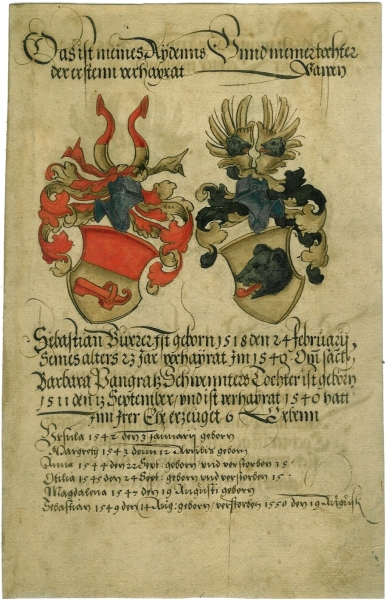 Das ist meines Aydenns Vnnd meiner tochter
der erstenn verhayrat Wapen
Sebastian ist geborn 1518 den 24 februarij
Seines alters 23 Jar verhayrat Im 1540
Barbara Pangratz Schwennters Tochter ist geborn
1511 den 13 September vnd ist verhayrat 1540 hatt
Inn Irer Ehe erzeuget 6
Vrsula 1542 den 3 January geborn
Margreth 1543 denn 12 Aprilis geborn
Anna 1544 den 22 Sept: geborn vnd verstorben 15
Otilia 1545 den 24 Sept: geborn vnd verstorben 15
Magdalena 1547 den 19 Augusti geborn
Sebastian 1549 den 14 Aug: geborn / verstorben 1550 den 19 August